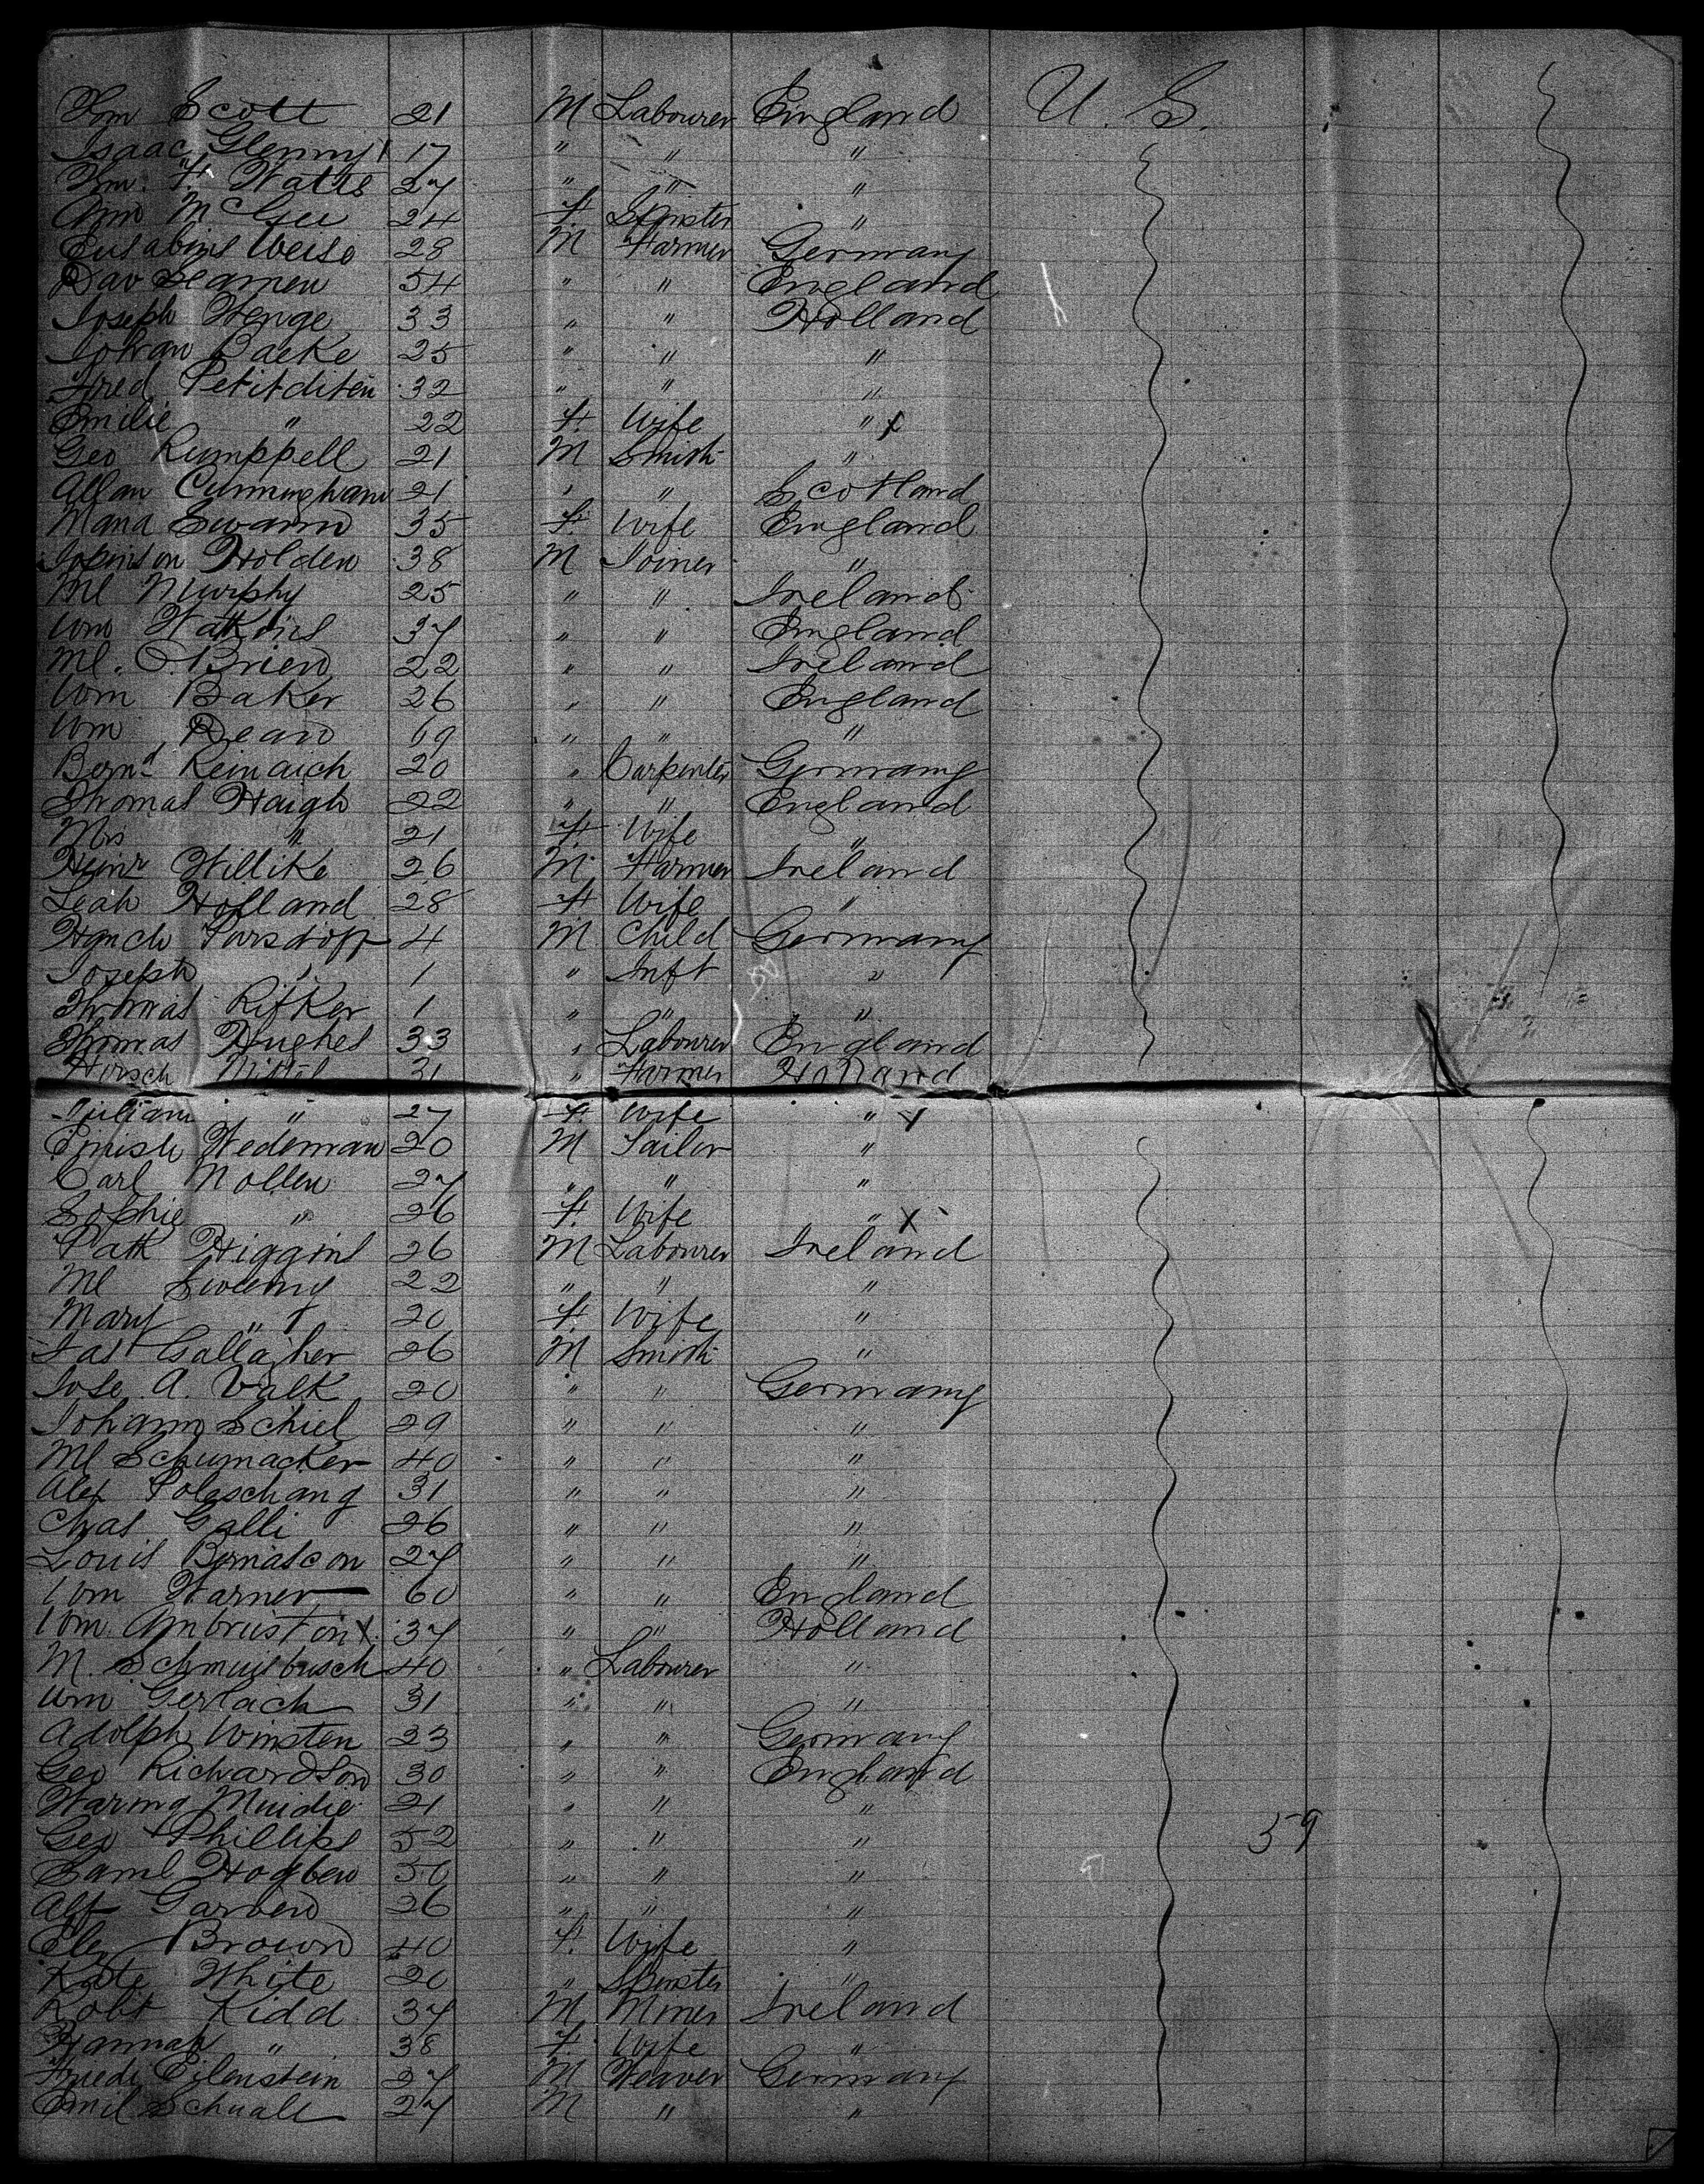 Wm Scott 21 M Labourer England U.S.
Isaac Glenny 17 " " "
Wm. H. Watts 27 " " "
Ann McGee 24 F Spinster "
Weiss 28 M Farmer Germany
Dav Seamen 54 " " England
Joseph Wenge 33 " " Holland
Johan Backe 25 " " "
Fred 32 " " "
Emilie " 22 F. Wife " x
Geo Rumppell 21 M Smith "
Allan Cunningham 21 " " Scotland
Swann 35 F. Wife England
Holden 38 M Joiner "
Ml Murphy 25 " " Ireland
Wm Watkins 37 " " England
Ml. O'Brien 22 " " Ireland
Wm Baker 26 " " England
Wm Dean 69 " " "
Bernd Reinaich 20 " Carpenter Germany
Thomas Haigh 22 " " England
Mrs " 21 F Wife "
Heinr Willike 26 M Farmer Ireland
Leah Holland 28 F Wife "
4 M Child Germany
Joseph " 1 " Inft "
Thomas Rifker 1 " " "
Thomas Hughes 33 " Labourer England
Hirsch 31 " Farmer Holland
" 27 F. Wife " x
Wedeman 20 M Tailor "
Carl Nollen 27 " " "
Sophie " 26 F. Wife " x
Patk Higgins 26 M Labourer Ireland
Ml Sweeny 22 " " "
Mary " 20 F. Wife "
Jas Gallagher 26 M Smith "
Jose. A. Valk 20 " " Germany
Johann Schiel 29 " " "
Ml Schumacker 40 " " "
Alex 31 " " "
Chas Galli 26 " " "
Louis Bernascon 27 " " "
Wm Warner 60 " " England
Wm. x 37 " " Holland
M. 40 " Labourer "
Wm Gerlach 31 " " "
Adolph Winsten 23 " " Germany
Geo Richardson 30 " " England
Waring Muidie 21 " " "
Geo Phillips 52 " " " 59
Saml Hogben 50 " " "
Alf 26 " " "
Brown 40 F. Wife "
Kate White 20 " Spinster "
Robt Kidd 37 M Miner Ireland
Hannah " 38 F. Wife "
Eilenstein 27 M Weaver Germany
Emil Schuale 27 M " "